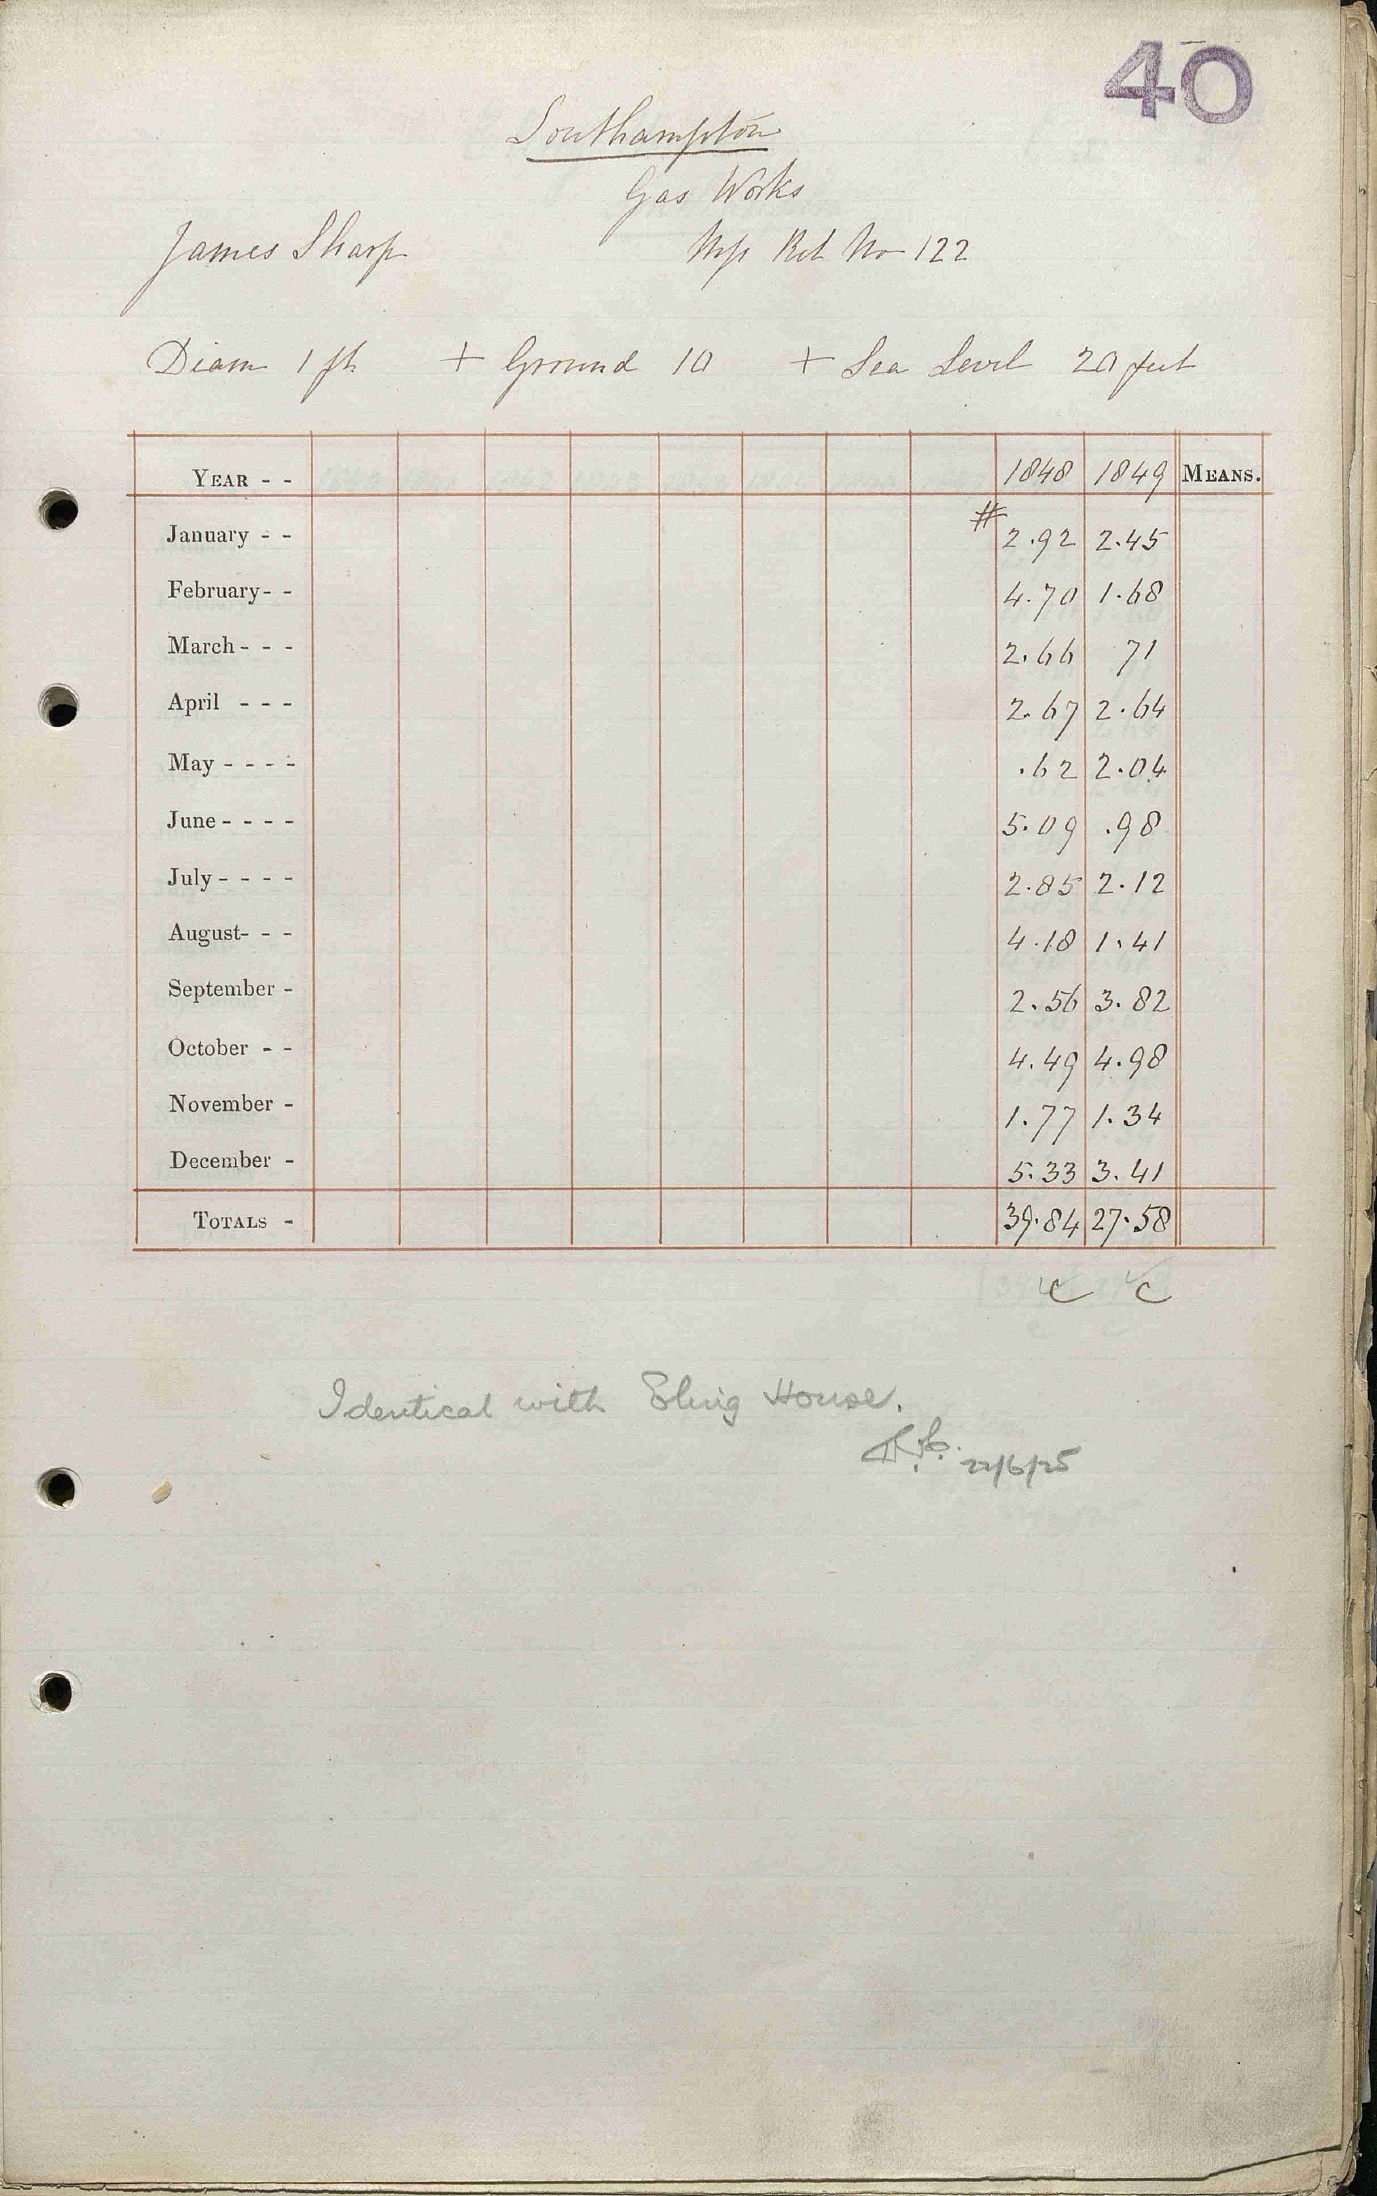 40
Southampton
Gas Works
James Sharp Mss Ret No 122
Diam 1 ft + Ground 10 + Sea Level 20 feet
YEAR - - 1848 1849 MEANS.
January - - # 2.92 2.45
February - - 4.70 1.68
March - - - 2.66 71
April - - - 2.67 2.64
May - - - - .62 2.04
June - - - - 5.09 .98
July - - - - 2.85 2.12
August - - - 4.18 1.41
September - 2.56 3.82
October - - 4.49 4.98
November - 1.77 1.34
December - 5.33 3.41
TOTALS - 39.84 27.58
C C
Identical with Eling House.
22/6/25